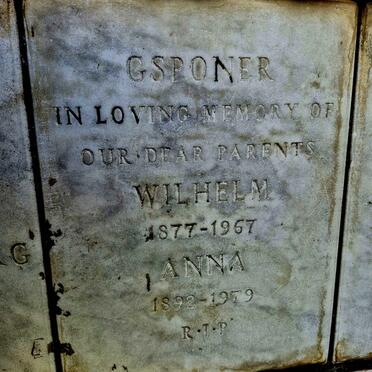 GSPONER
IN LOVING MEMORY OF
OUR DEAR PARENTS
WILHELM
1877-1967
ANNA
1892-1979
R.I.P
G
E